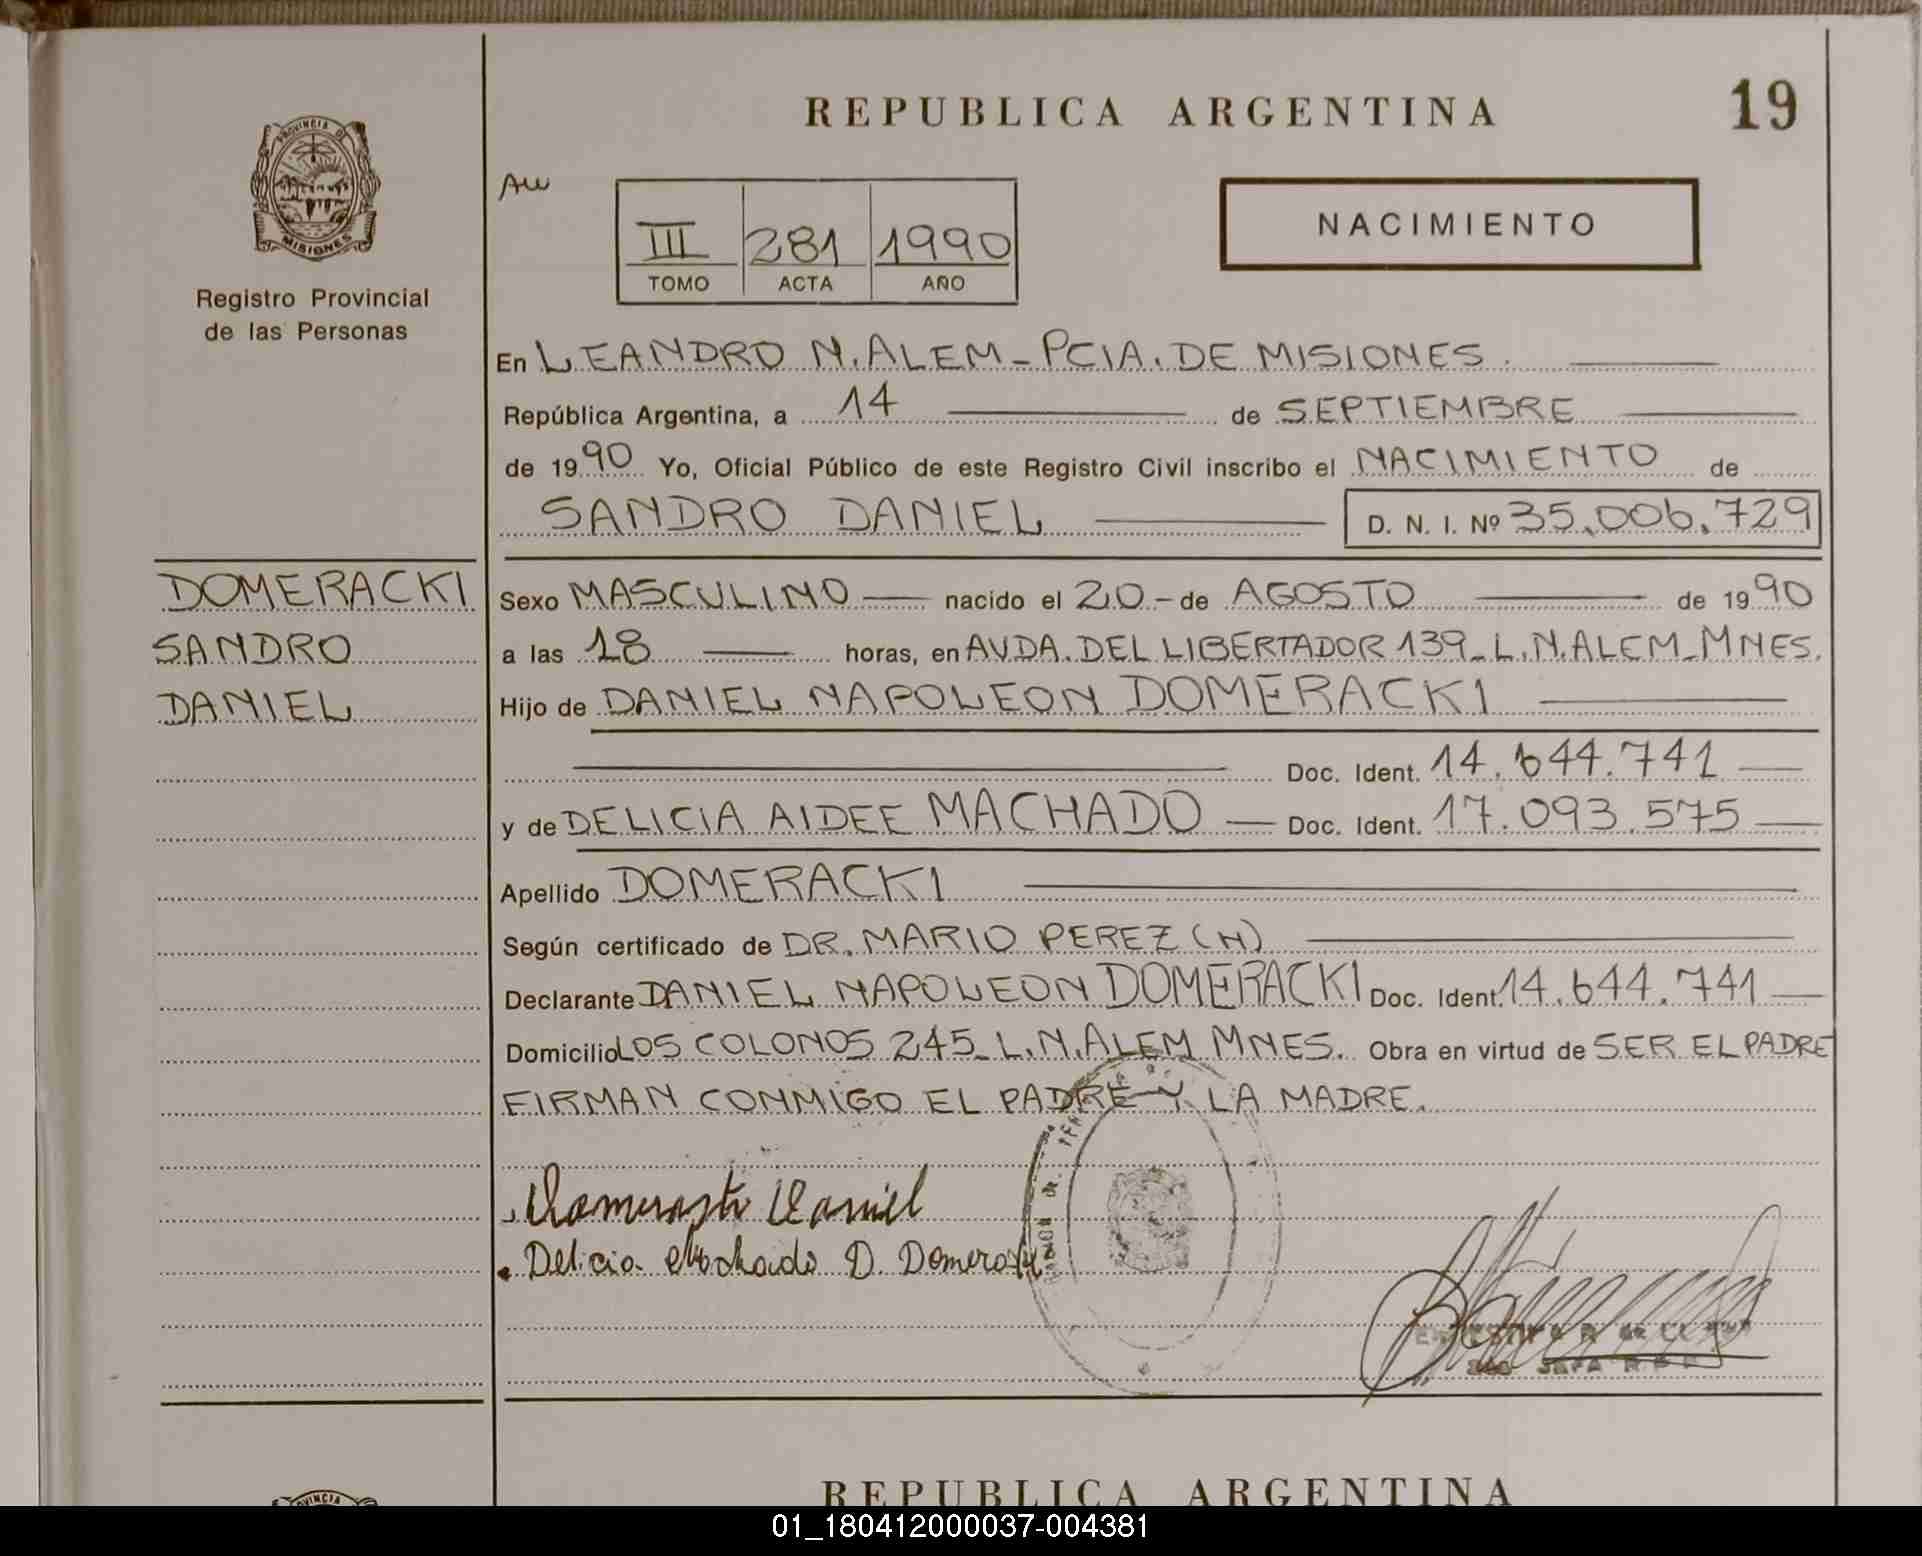 PROVINCIA DE
MISIONES
Registro Provincial
de las Personas
REPUBLICA ARGENTINA
19
AW
III 281 1990
TOMO ACTA AÑO
NACIMIENTO
En LEANDRO N. ALEM - PCIA. DE MISIONES.
República Argentina, a 14 de SEPTIEMBRE
de 1990 Yo, Oficial Público de este Registro Civil inscribo el NACIMIENTO de
SANDRO DANIEL D. N. I. Nº 35.006.729
DOMERACKI
SANDRO
DANIEL
Sexo MASCULINO nacido el 20 - de AGOSTO de 1990
a las 18 horas, en AVDA. DEL LIBERTADOR 139 - L. N. ALEM - MNES.
Hijo de DANIEL NAPOLEON DOMERACKI
Doc. Ident. 14.644.741
y de DELICIA AIDEE MACHADO Doc. Ident. 17.093.575
Apellido DOMERACKI
Según certificado de DR. MARIO PEREZ (H)
Declarante DANIEL NAPOLEON DOMERACKI Doc. Ident. 14.644.741
Domicilio LOS COLONOS 245 - L. N. ALEM MNES. Obra en virtud de SER EL PADRE
FIRMAN CONMIGO EL PADRE Y LA MADRE.
Daniel
Delicia Machado D. Domeracki
REPUBLICA ARGENTINA
01_180412000037-004381